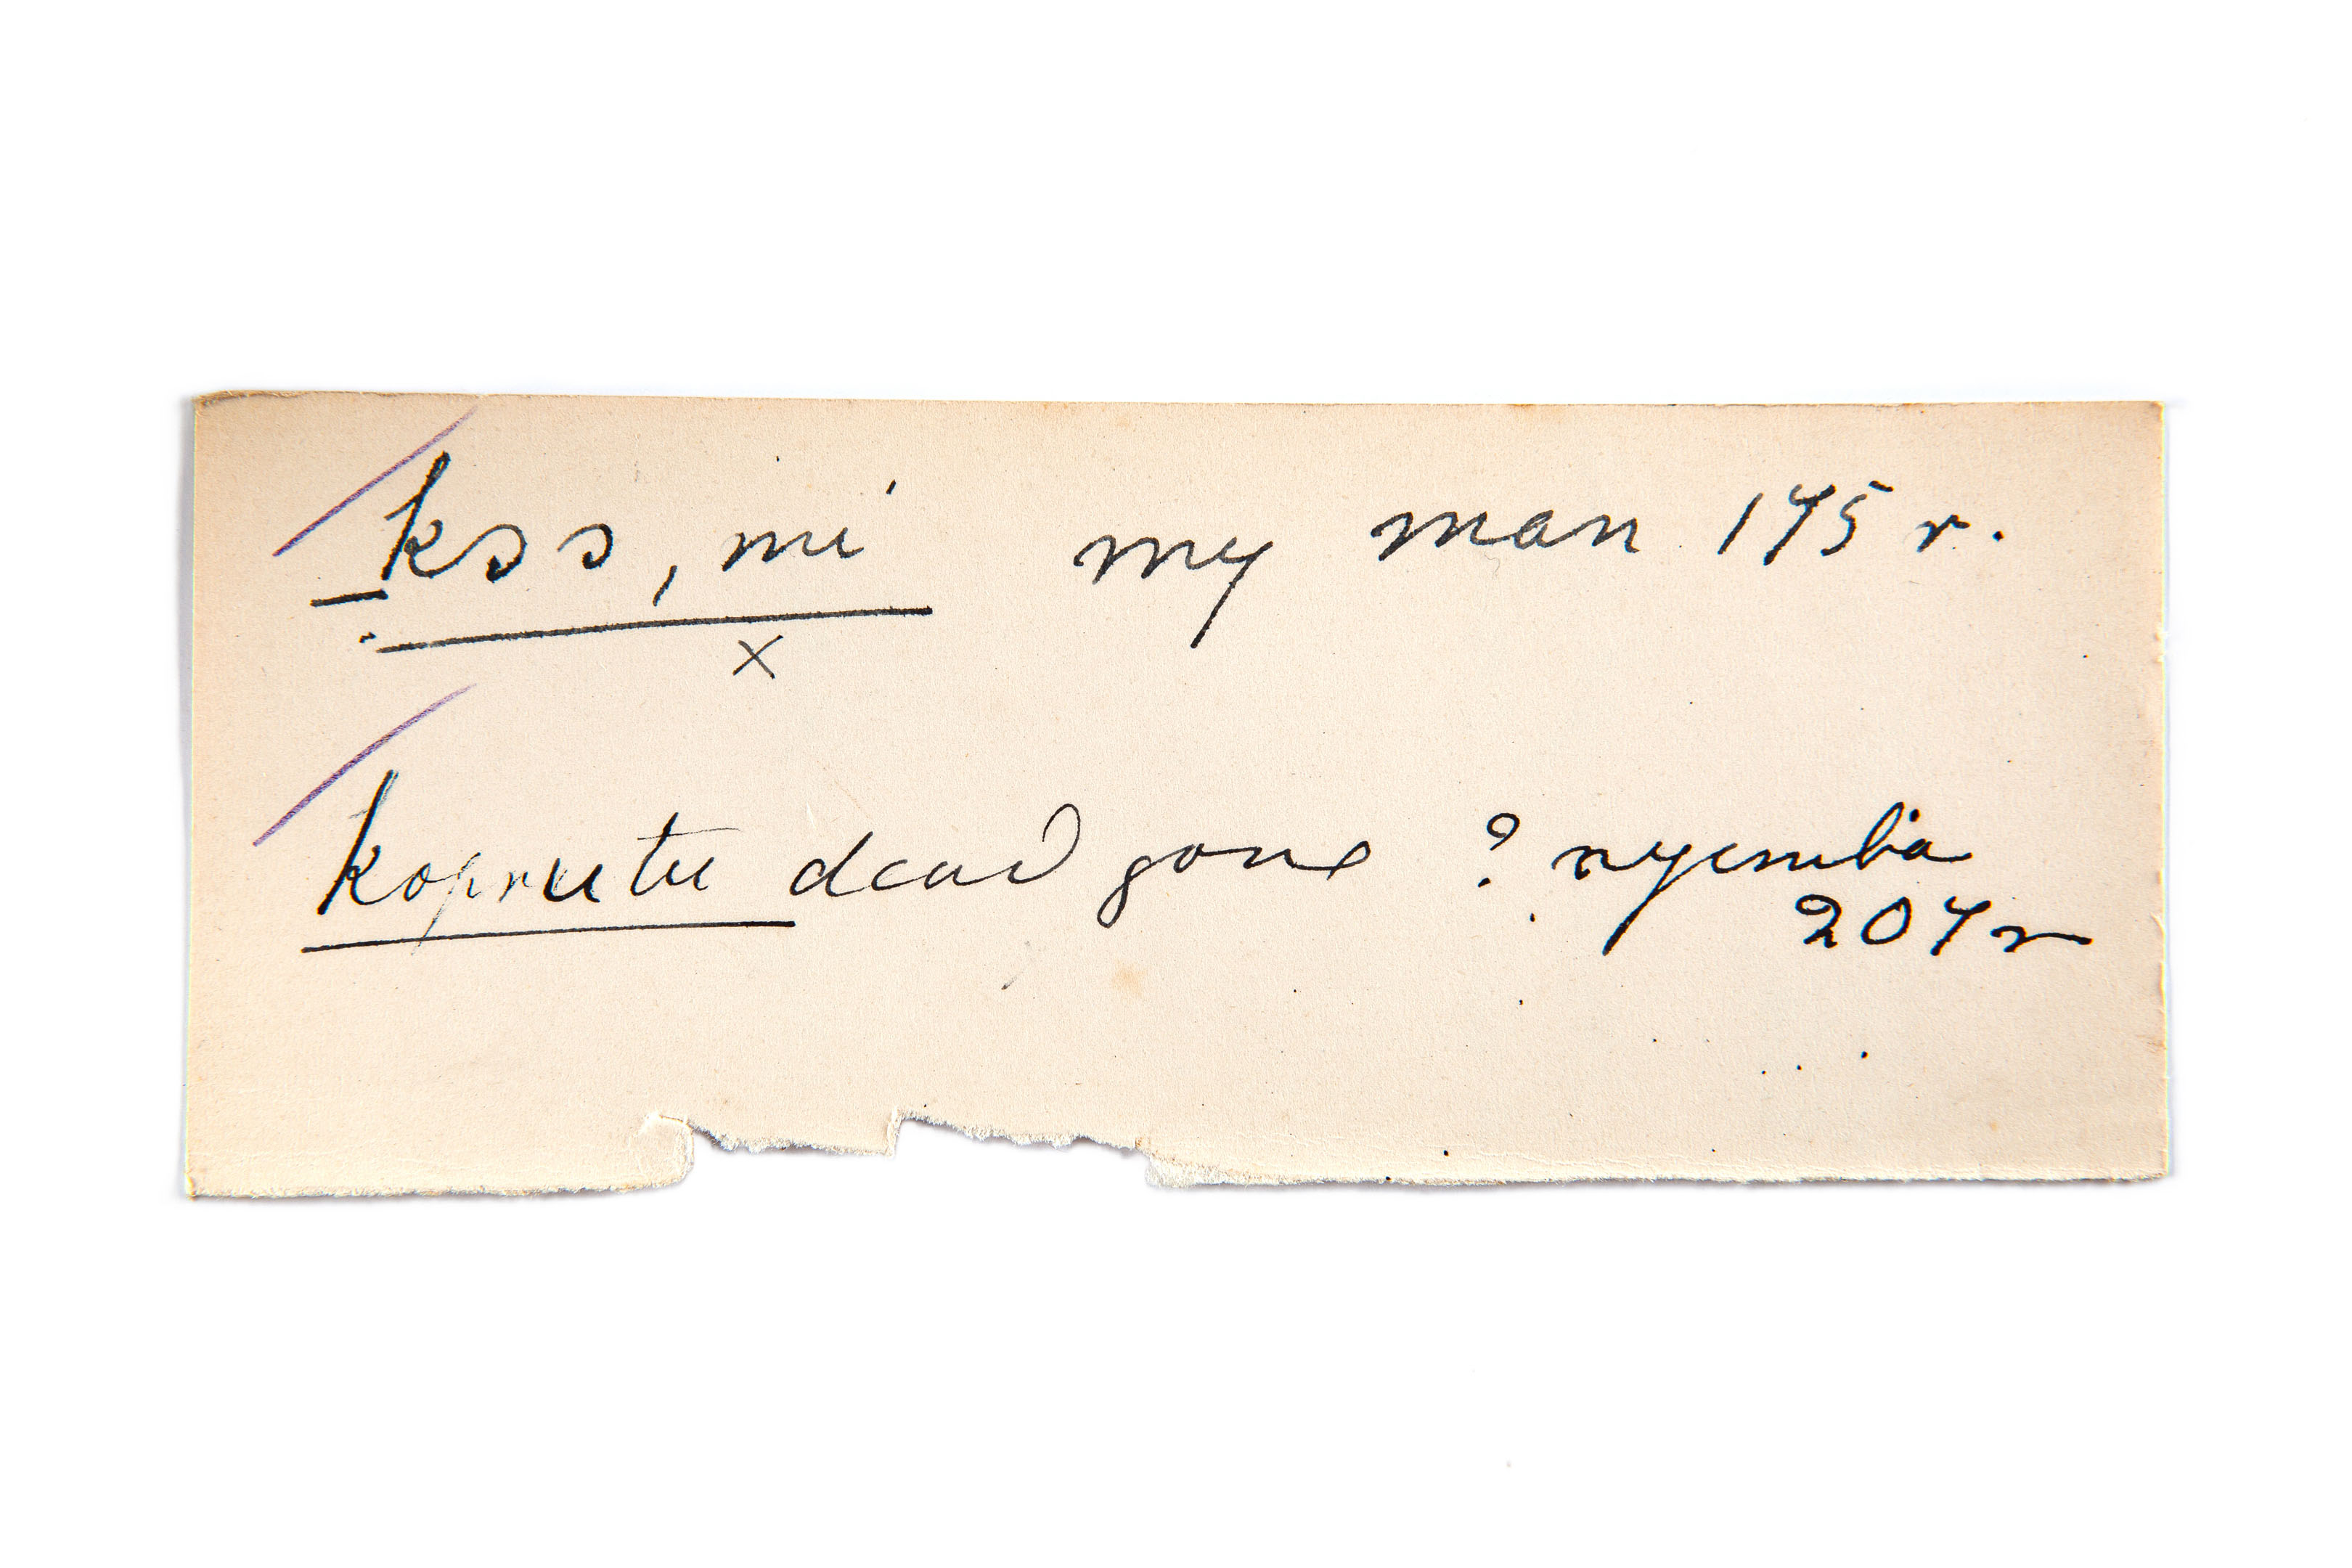 kss, mi my man 175 r.
x
koprutu dead gone ? nyemba
207 r